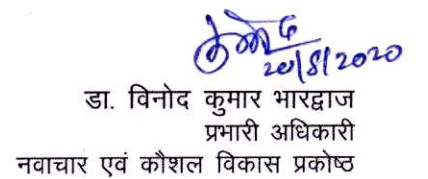 20/8/2020
डा. विनोद कुमार भारद्वाज
प्रभारी अधिकारी
नवाचार एवं कौशल विकास प्रकोष्ठ